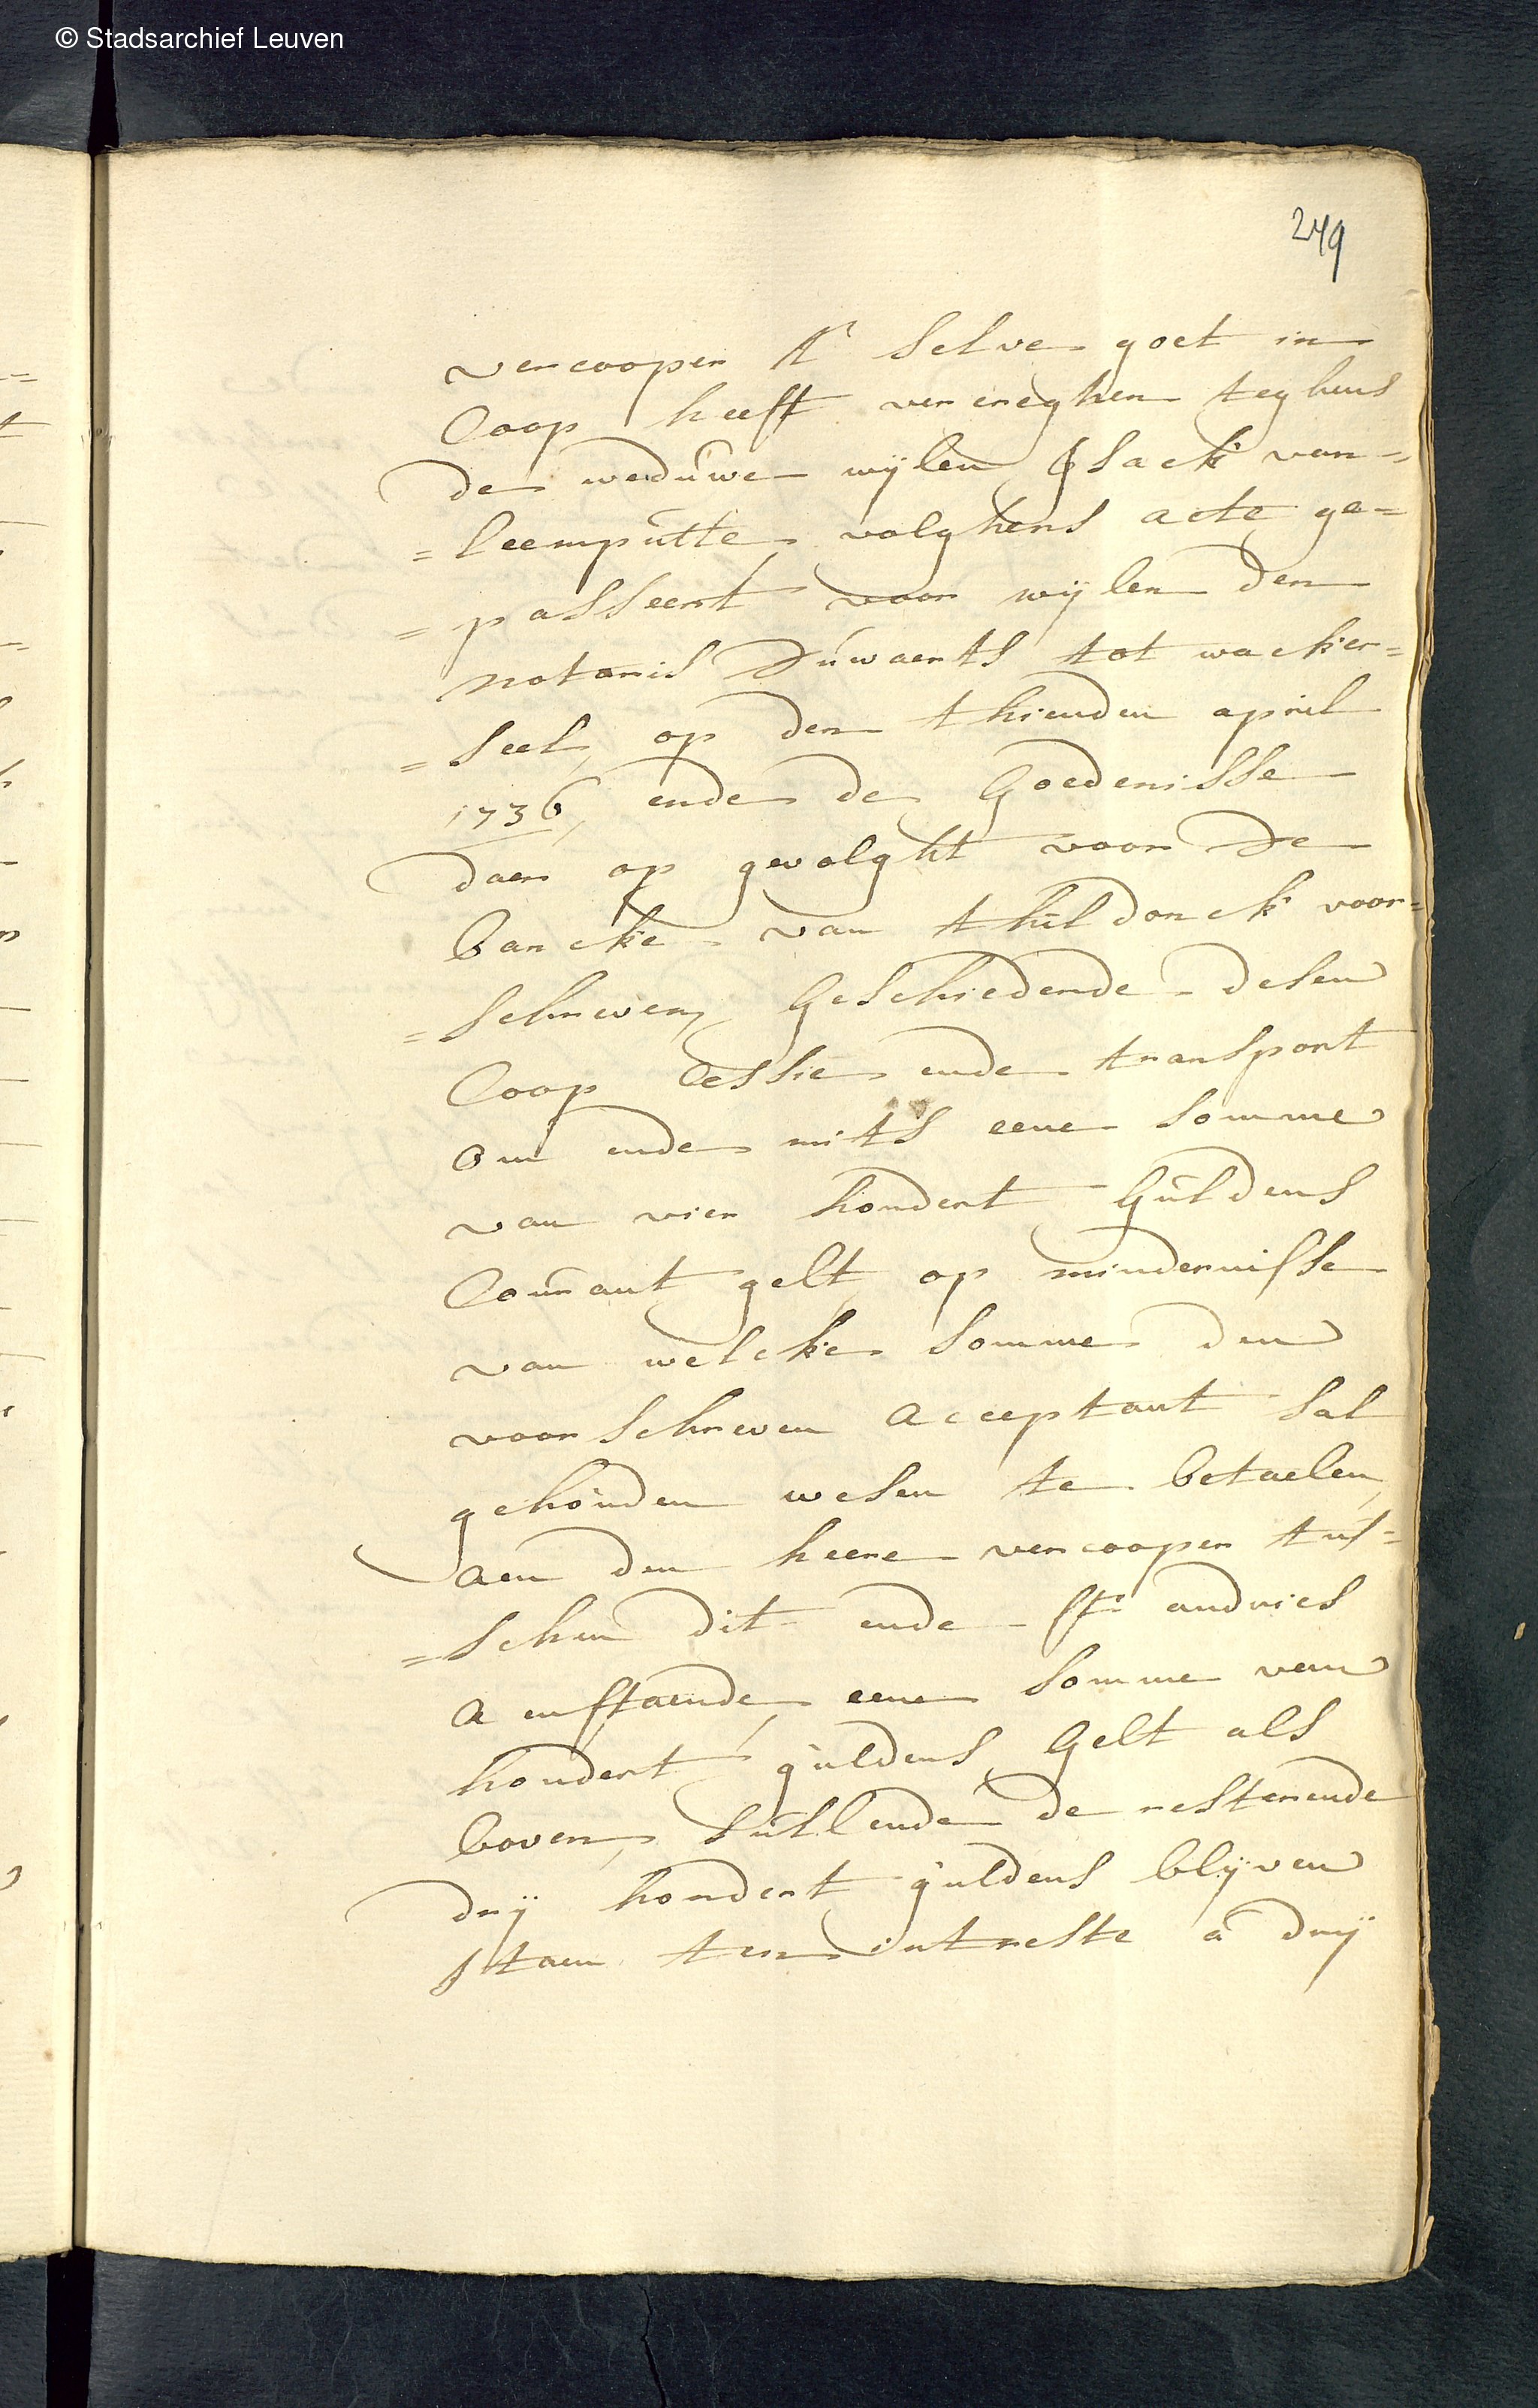 © Stadsarchief Leuven
249
vercooper t' selve goet in
Coop heeft vercreghen teghens
de weduwe wijlen Isack van=
=leempütte, volghens acte ge=
=passeert voor wijlen den
notaris Düwaerts tot wacker=
=seel, op den thienden april
1736, ende de Goedenisse
daer op gevolght voor de
bancke van thildonck voor=
=schreven, Geschiedende desen
Coop Cessie ende transport
om ende mits eene somme
van vier hondert Güldens
Courant gelt, op mindernisse
van welcke somme den
voorschreven acceptant sal
gehouden wesen te betaelen,
aen den heere vercooper tüs=
=schen dit ende st andries
aenstaende, eene somme van
hondert güldens Gelt als
boven, süllende de resterende
drÿ hondert güldens blÿven
staen ten intreste à drÿ